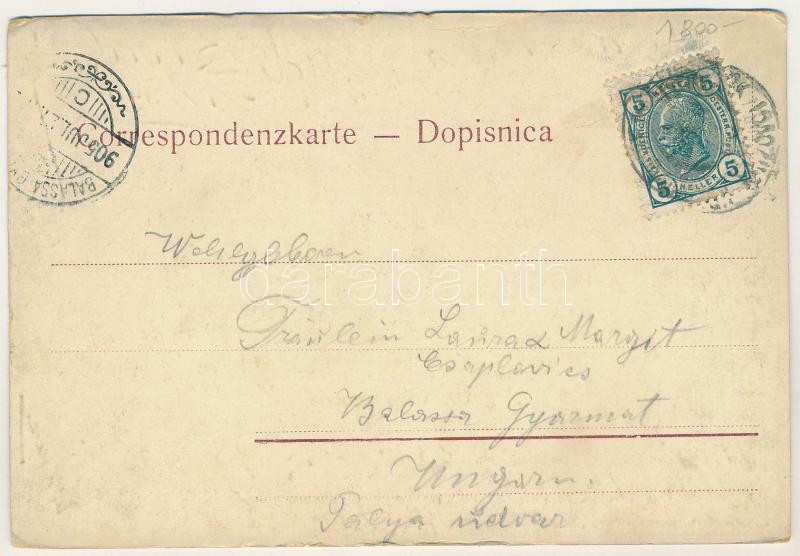 1800-
Correspondenzkarte — Dopisnica
5 5
5 HELLER 5
905 JUL
C
BALASSA
Wohlgeboren
darabanth
Fräulein Laura & Margit
Csaplovics
Balassa Gyarmat
Ungarn.
Palya udvar